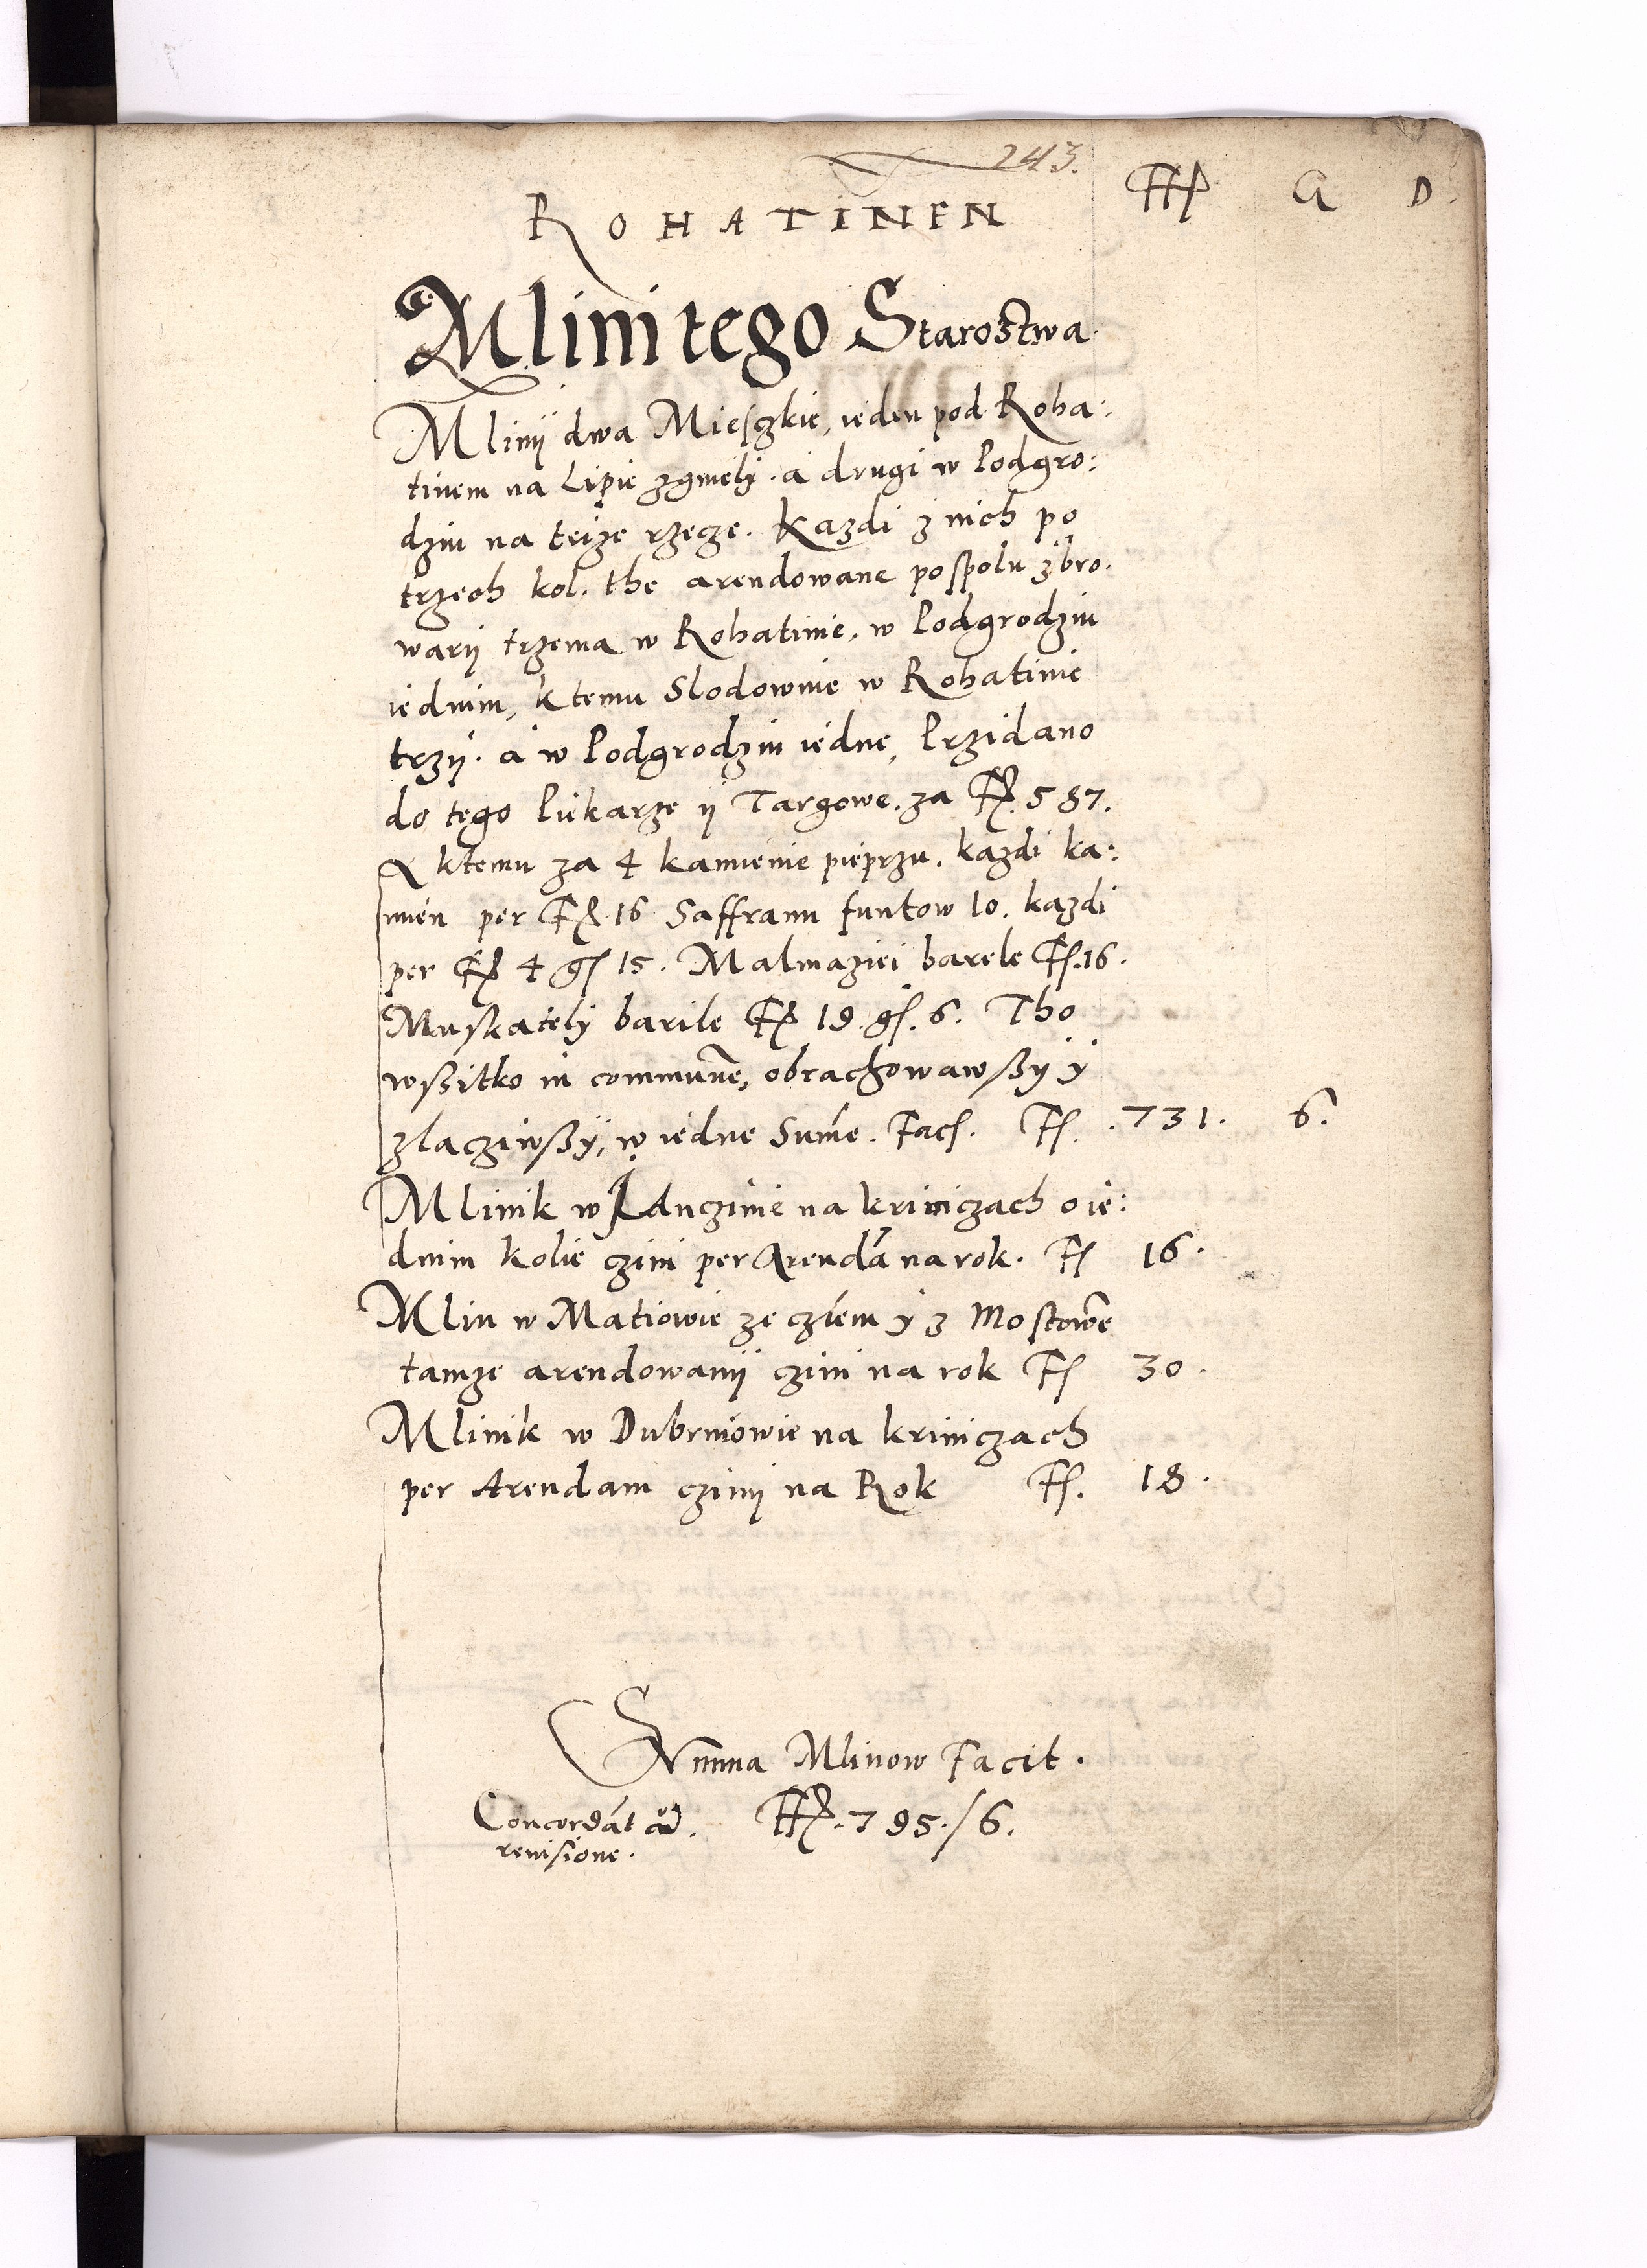 243.
Ff G D.
ROHATINEN
Mlini tego Starostwa
Mlinÿ dwa Mieſzkie, ieden pod Roha:
tinem na Lipie zgmelÿ. a drugi w Podgro:
dziu na teize rzecze. Kazdi z nich po
trzech kol. the arendowane poſpolu z bro.
warÿ trzema w Rohatinie, w Podgrodziu
iednim, k temu Slodownie w Rohatinie
trzÿ. a w Podgrodziu iedne, Przidano
do tego Piekarze ÿ Targowe. za Ff. 587.
A ktemu za 4 kamienie pieprzu. kazdi ka:
mien per Ff. 16 Saffranu funtow 10. kazdi
per Ff 4 gſ 15. Malmaziei barele Ff. 16.
Muskatelÿ barile Ff 19. gſ. 6. Tho
wßitko in commune, obrachowawßÿ ÿ
zlacziwßÿ, w iedne Sume. Facſ. Ff. 731. 6.
Mlinik w Luczinie na kriniczach o ie:
dnim kolie czini per Arendā na rok. Ff 16.
Mlin w Matiowie ze cżlem ÿ z Mostowē
tamze arendowanÿ czini na rok Ff 30.
Mlinik w Dubrniowie na kriniczach
per Arendam czinÿ na Rok Ff. 18.
Summa Mlinow Facit.
Concordāt cū. Ff. 795./6.
reuisione.